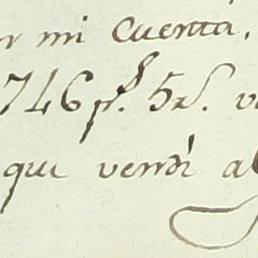 mi Cuenta,
746 p.s 5 r.s
qui vendi al